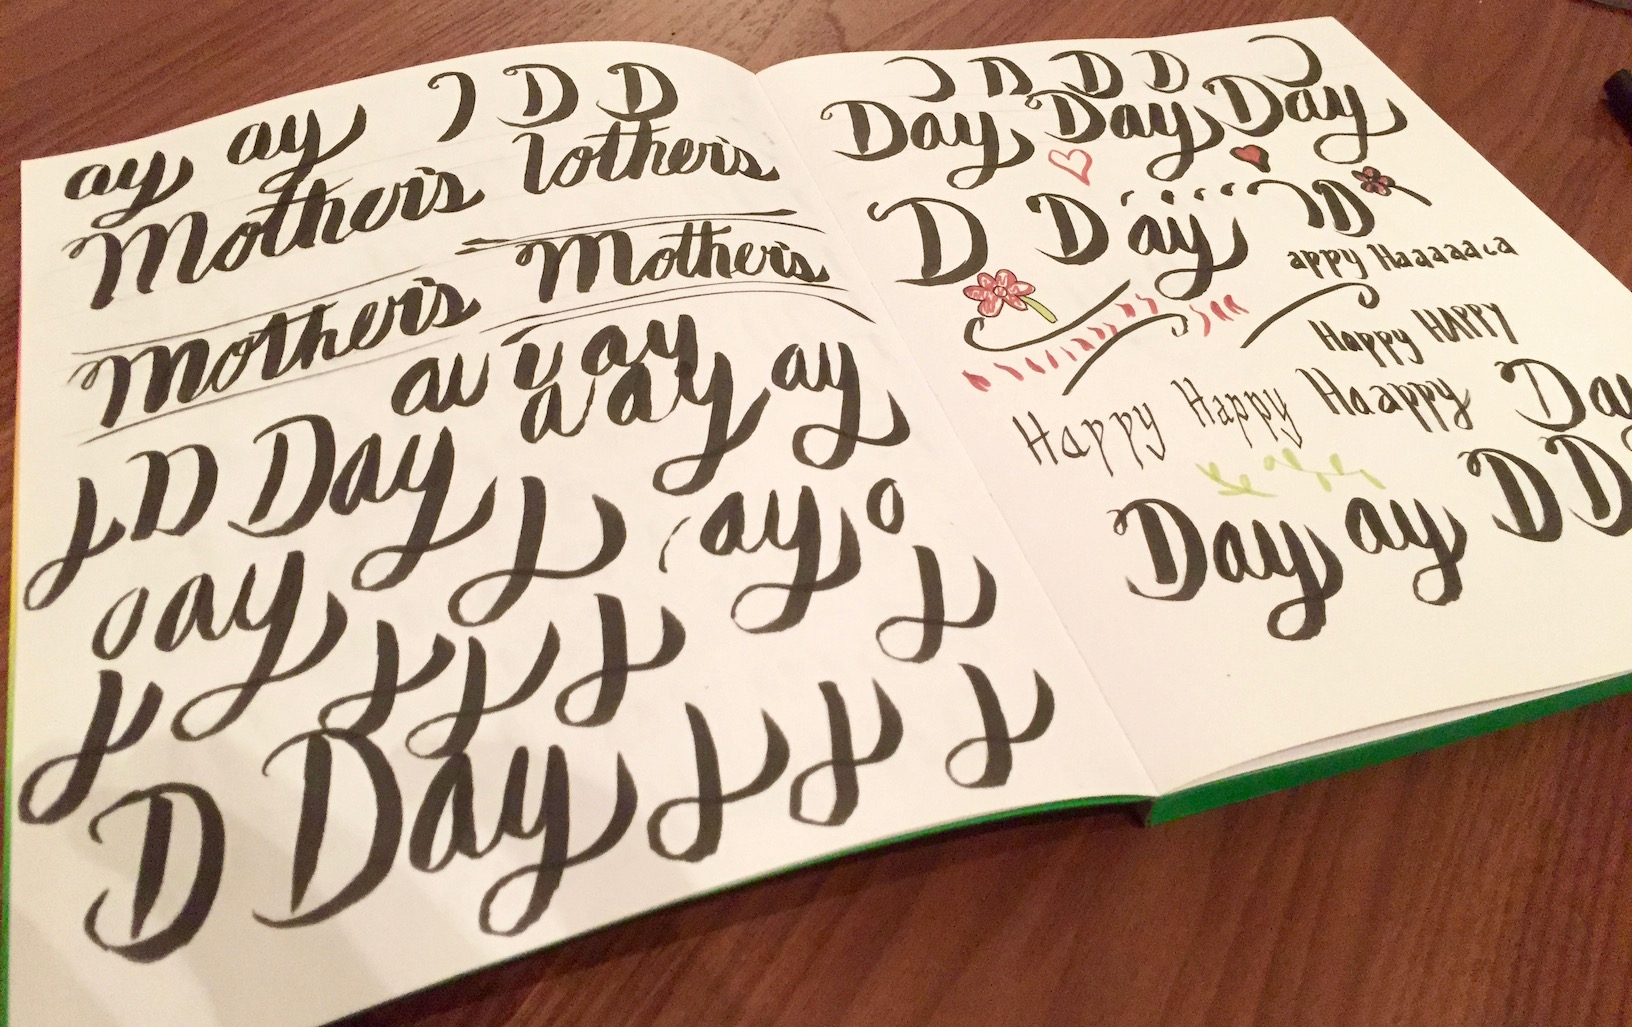 ay ay D D
Mother's lother's
Mother's Mother's
au ay
a ay ay
D Day
ay o
o ay
D Day
D D D
Day Day Day
D D ay D
appy Haaaaaca
Happy HAPPY
Happy Happy Haappy Day
Day ay D D